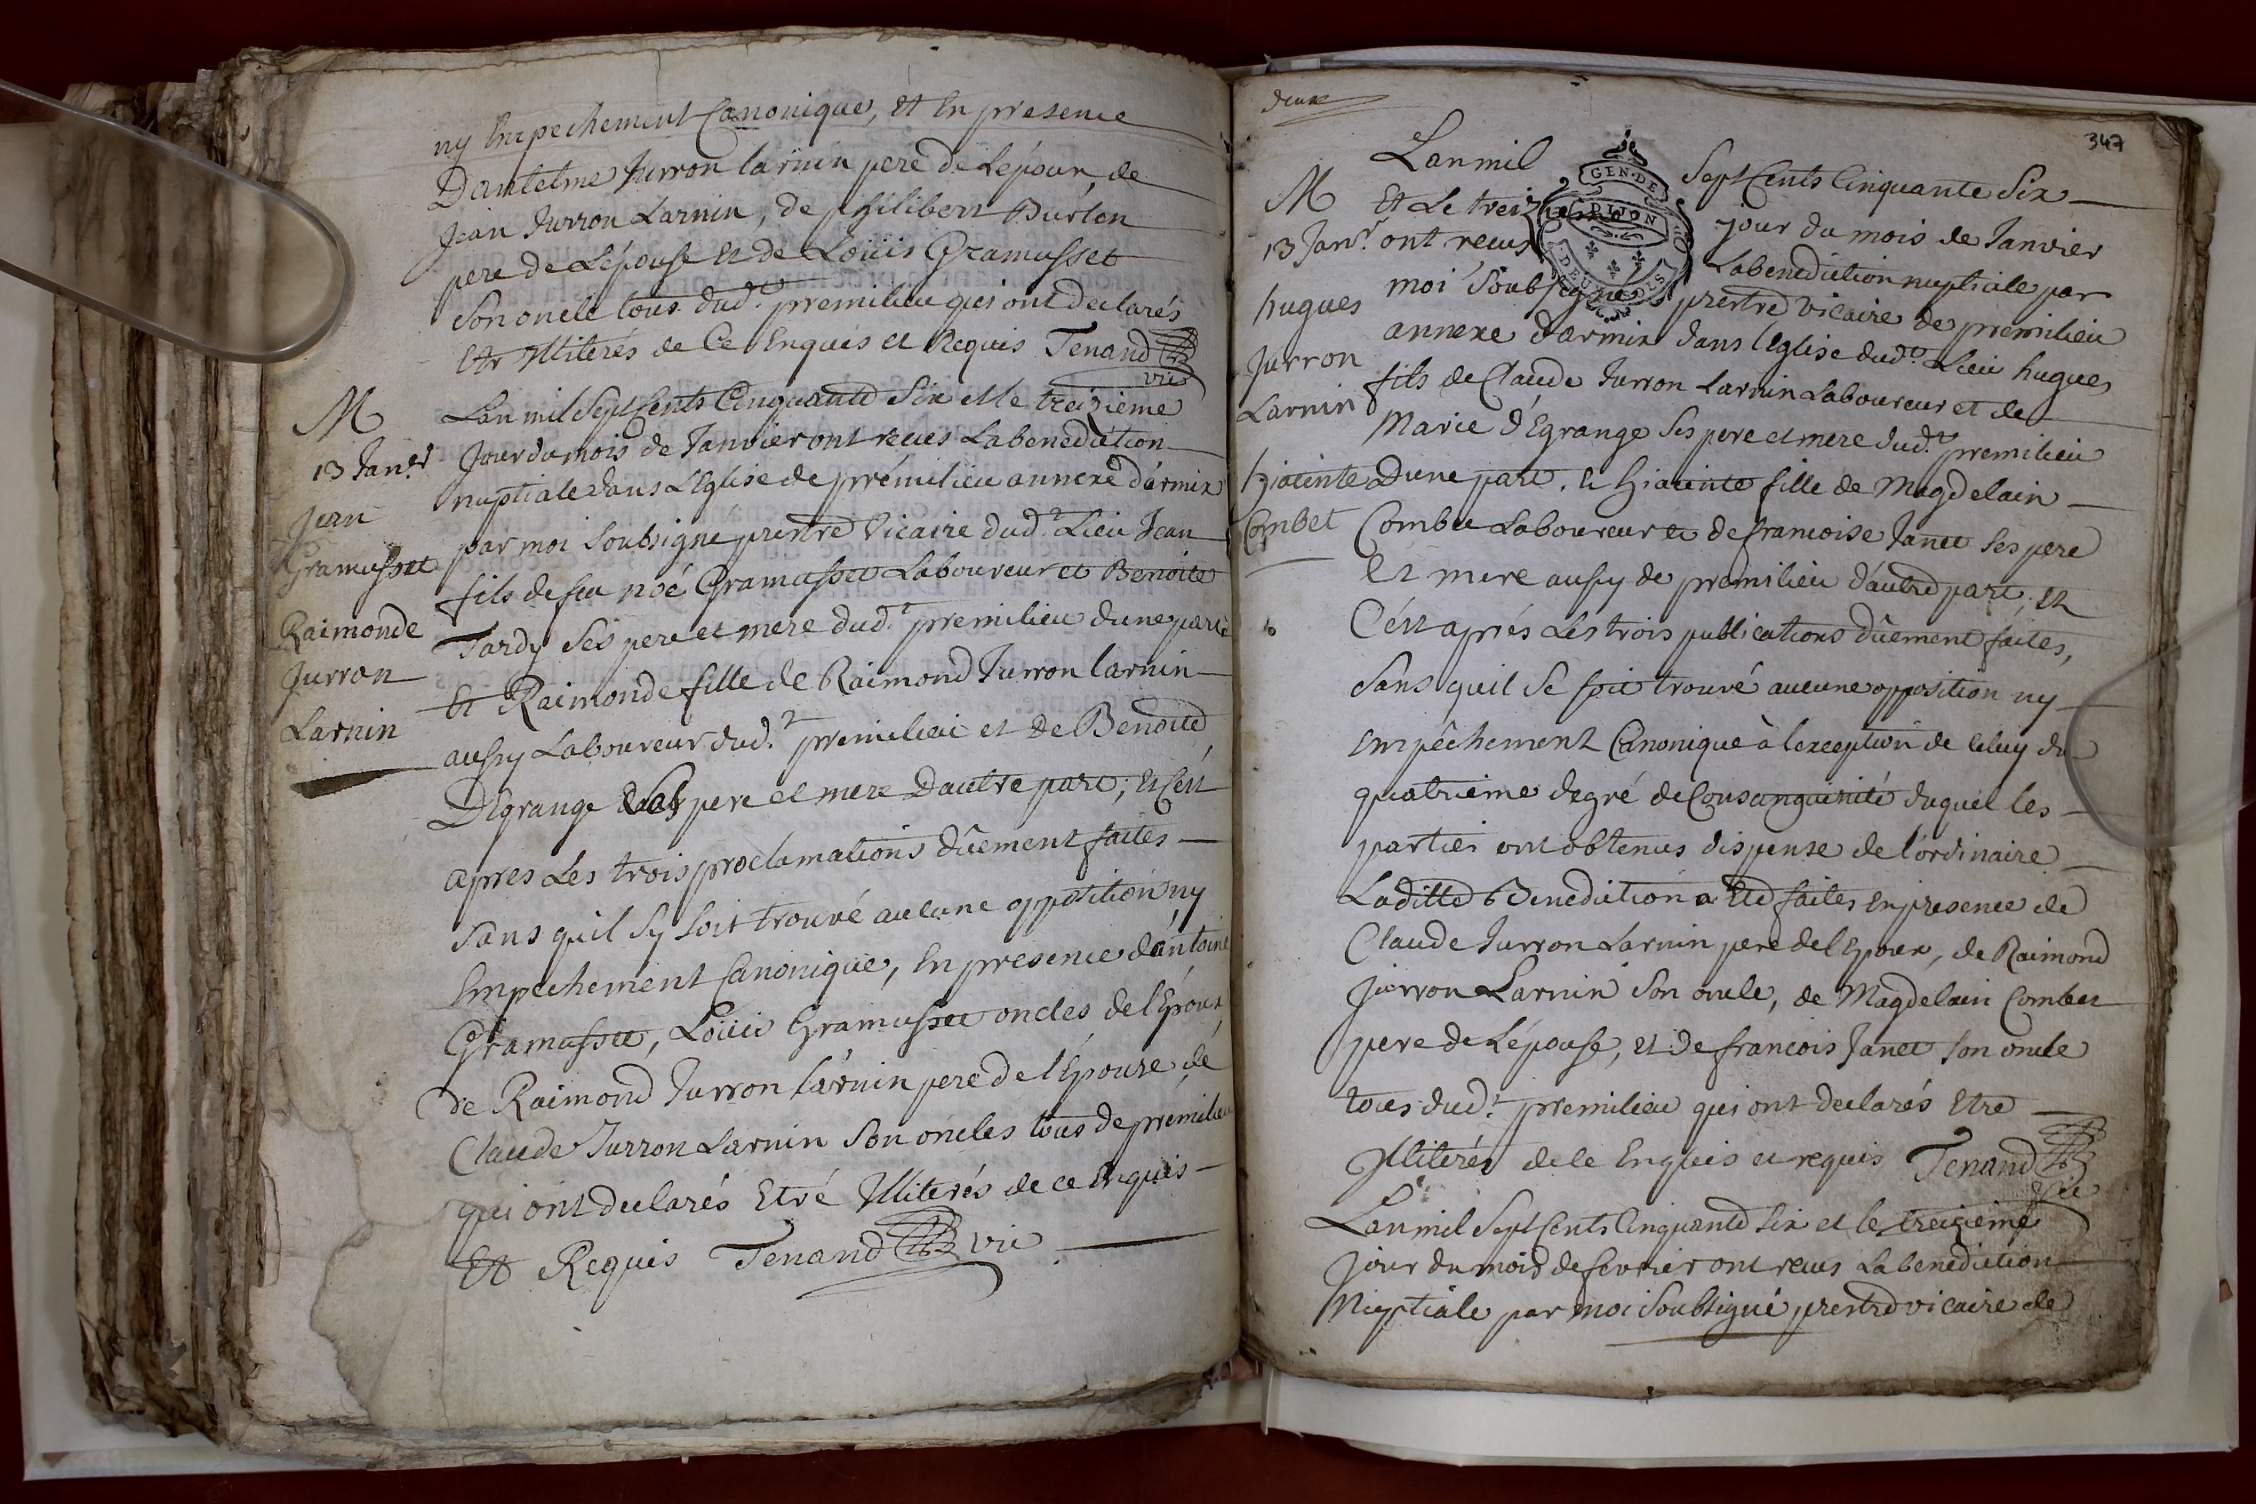 ny Empechement Canonique, et En presence
Dantelme Jurron larnin pere de Lépoux, de
Jean Jurron Larnin, de philibert Burlon
pere de L'épouse et de Loüis Gramusset
son oncle tous dud.t premilieu qui ont declarés
Etr Illiterés de Ce Enquis et Requis Tenand
vic
M
13 Jan.er
Jean
Gramusset
Raimonde
Jurron
Larnin
Lan mil Sept Cents Cinquante Six et le treizieme
Jour du mois de Janvier ont recues La benediction
nuptiale dans L'Eglise de prémilieu annexe d'armix
par moi soubsigné prestre Vicaire dud.t Lieu Jean
fils de feu noé Gramusset Laboureur et Benoite
Tardy ses pere et mere dud.t premilieu dune part
Et Raimonde fille de Raimond Jurron larnin
aussy Laboureur dud.t premilieu et de Benoite
D'Egrange ses pere et mere Dautre part; et C'ést
apres Les trois proclamations dûement faites
sans quil sy soit trouvé aucune opposition ny
Empechement Canonique, En presence d'antoine
Gramusset, Loüis Gramusset oncles de l'Epoux,
de Raimond Jurron larnin pere de l'Epouse de
Claude Jurron Larnin son oncles tous de premilieu
qui ont declarés Etré Illiterés de ce Enquis
Et Requis Tenand vic
deux
347
GEN·DE
DIJON
DEUX SOLS
M
13 Jan.r
hugues
Jurron
Larnin
hiacinte
Combet
Lan mil Sept Cents Cinquante Six
Et Le treizieme jour du mois de Janvier
ont recus Labenediction nuptiale par
moi Soubsigné prestre vicaire de premilieu
annexe d'armix dans l'Eglise dud.t Lieu hugues
fils de Claude Jurron Larnin Laboureur et de
Marie d'Egrange ses pere et mere dud.t premilieu
Dune part. Et hiacinte fille de Magdelain
Combet Laboureur et de francoise Janet ses pere
Et mere aussy de premilieu d'autre part; et
C'ést aprés Les trois publications dûement faites,
sans quil se soit trouvé aucune opposition ny
empêchement Canonique à lexception de celuy du
quatrieme degré de Consanguinité duquel les
parties ont obtenus dispense de l'ordinaire
Laditte Benediction a Eté faites En presence de
Claude Jurron Larnin pere de l'Epoux, de Raimond
Jurron Larnin son oncle, de Magdelain Combet
pere de L'épouse, et de francois Janet son oncle
tous dud.t premilieu qui ont declarés Etre
Illiterés de Ce Enquis et requis Tenand
vic
Lan mil Sept Cents Cinquante six et le treizieme
jour du mois de fevrier ont recus La benediction
Nuptiale par moi Soubsigné prestre vicaire de